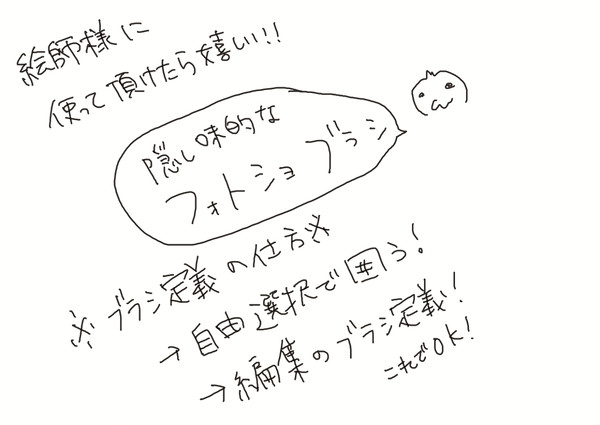 絵師様に
使って頂けたら嬉しい!!
隠し味的な
フォトショブラシ
※ブラシ定義の仕方※
→自由選択で囲う!
→編集のブラシ定義!
これでOK!